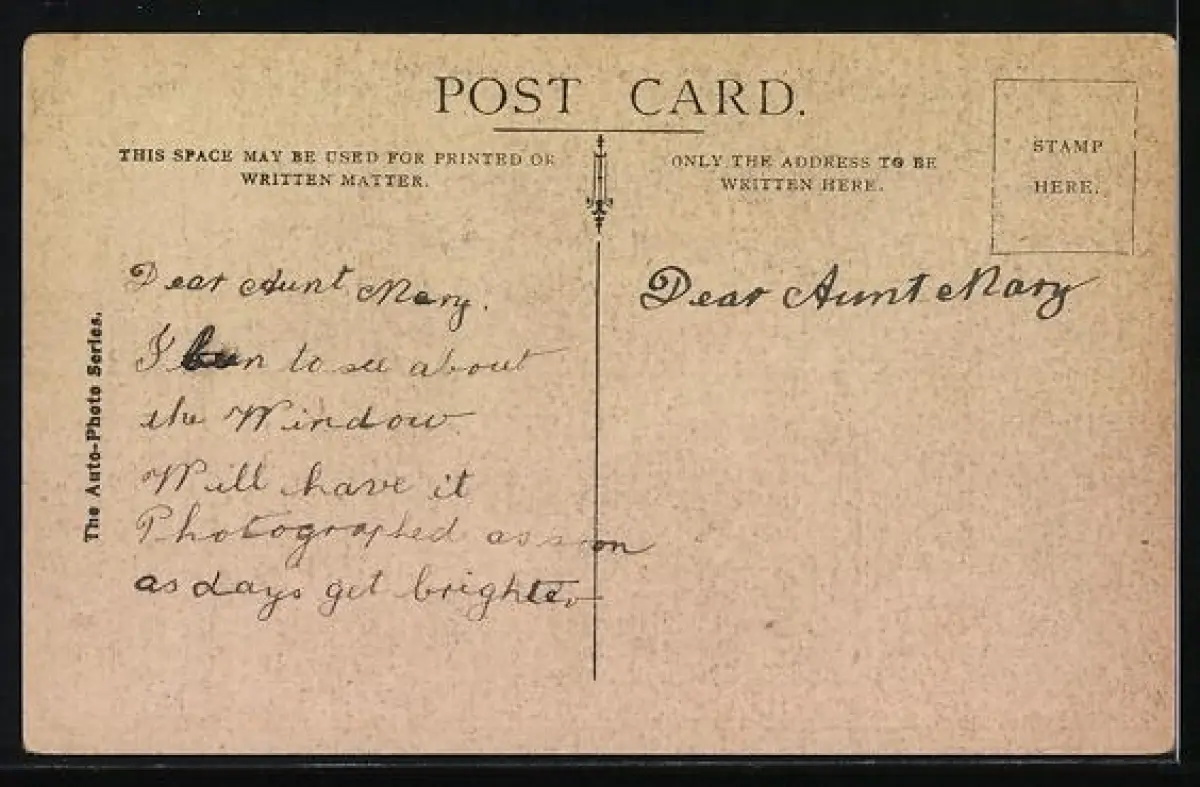 POST CARD.
THIS SPACE MAY BE USED FOR PRINTED OR
WRITTEN MATTER.
ONLY THE ADDRESS TO BE
WRITTEN HERE.
STAMP
HERE.
The Auto-Photo Series.
Dear Aunt Mary.
I to see about
the Window
Will have it
Photographed as soon
as days get brighter
Dear Aunt Mary